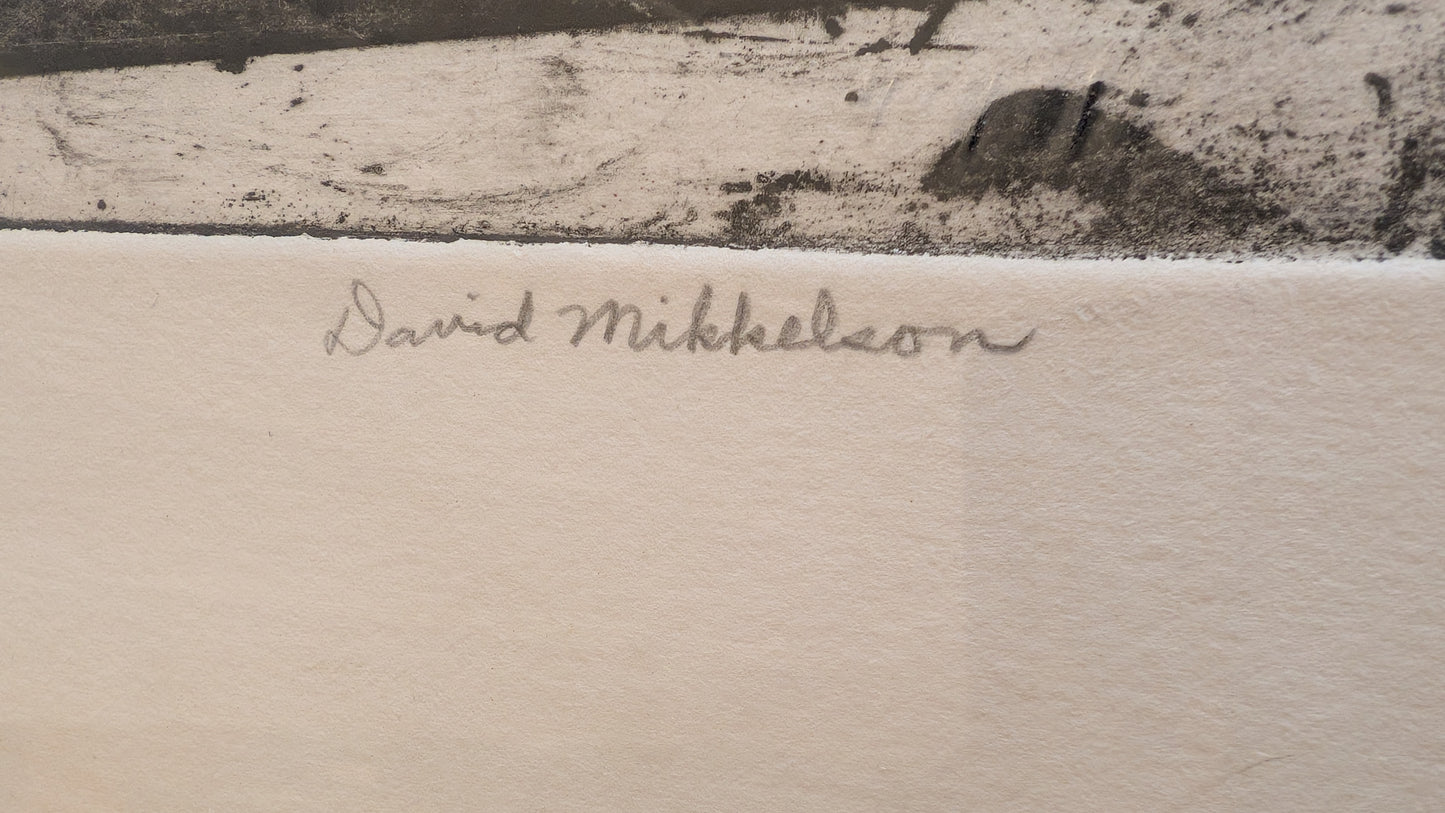 David Mikkelson